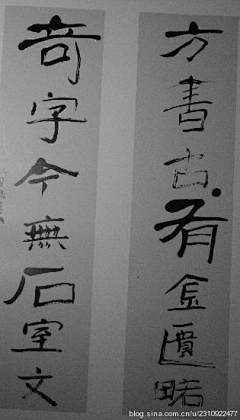 方書古有金匱略
奇字今無石室文
blog.sina.com.cn/u/2310922477